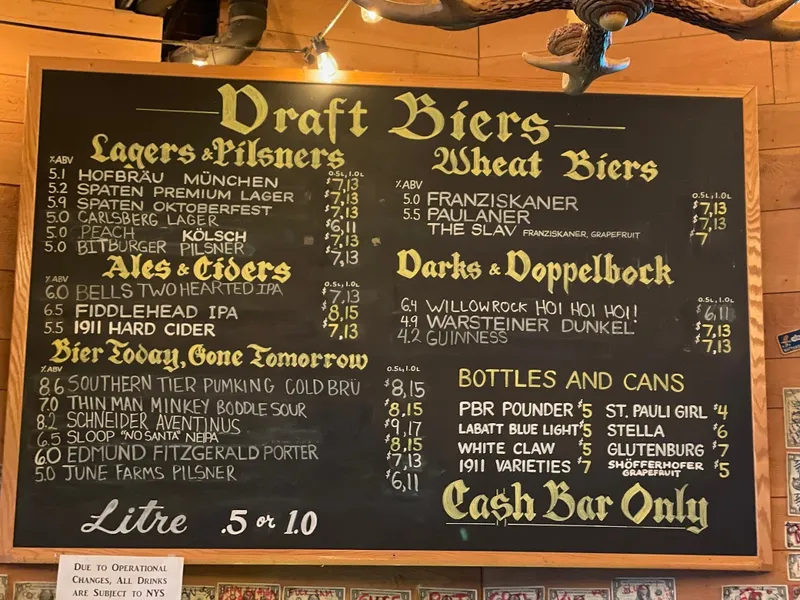 Draft Biers
Lagers & Pilsners
%ABV 0.5L, 1.0L
5.1 HOFBRÄU MÜNCHEN $7,13
5.2 SPATEN PREMIUM LAGER $7,13
5.9 SPATEN OKTOBERFEST $7,13
5.0 CARLSBERG LAGER $6,11
5.0 PEACH KÖLSCH $7,13
5.0 BITBURGER PILSNER $7,13
Ales & Ciders
%ABV 0.5L, 1.0L
6.0 BELLS TWO HEARTED IPA $7,13
6.5 FIDDLEHEAD IPA $8,15
5.5 1911 HARD CIDER $7,13
Bier Today, Gone Tomorrow
%ABV 0.5L, 1.0L
8.6 SOUTHERN TIER PUMKING COLD BRÜ $8,15
7.0 THIN MAN MINKEY BODDLE SOUR $8,15
8.2 SCHNEIDER AVENTINUS $9,17
6.5 SLOOP "NO SANTA" NEIPA $8,15
6.0 EDMUND FITZGERALD PORTER $7,13
5.0 JUNE FARMS PILSNER $6,11
Litre .5 or 1.0
Wheat Biers
%ABV 0.5L, 1.0L
5.0 FRANZISKANER $7,13
5.5 PAULANER $7,13
THE SLAV FRANZISKANER, GRAPEFRUIT $7
Darks & Doppelbock
0.5L, 1.0L
6.4 WILLOWROCK HO! HO! HO! $6,11
4.9 WARSTEINER DUNKEL $7,13
4.2 GUINNESS $7,13
BOTTLES AND CANS
PBR POUNDER $5 ST. PAULI GIRL $4
LABATT BLUE LIGHT $5 STELLA $6
WHITE CLAW $5 GLUTENBURG $7
1911 VARIETIES $7 SHÖFFERHOFER GRAPEFRUIT $5
Cash Bar Only
DUE TO OPERATIONAL
CHANGES, ALL DRINKS
ARE SUBJECT TO NYS